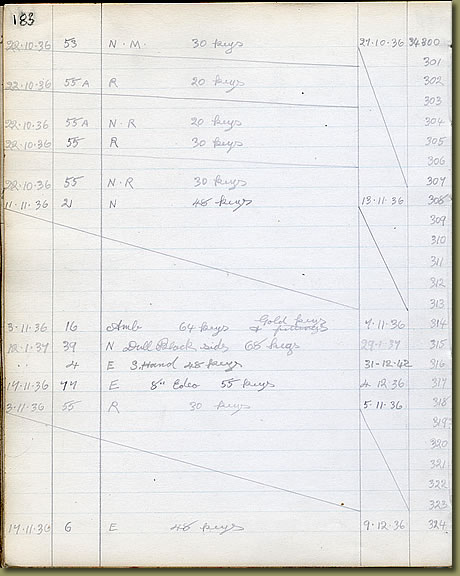 183
22.10.36 53 N.M. 30 keys 27.10.36 34300
301
22.10.36 55A R 20 keys 302
303
22.10.36 55A N.R 20 keys 304
22.10.36 55 R 30 keys 305
306
22.10.36 55 N.R 30 keys 307
11.11.36 21 N 48 keys 13.11.36 308
309
310
311
312
313
Gold keys
3.11.36 16 Amb 64 keys & 7.11.36 314
12.1.37 39 N Dull Black sides 68 keys 29.1.37 315
4 E S.Hand 48 keys 31-12-42 316
17.11.36 77 E 8" Edeo 55 keys 4.12.36 317
3.11.36 55 R 30 keys 5.11.36 318
319
320
321
322
323
17.11.36 6 E 48 keys 9.12.36 324